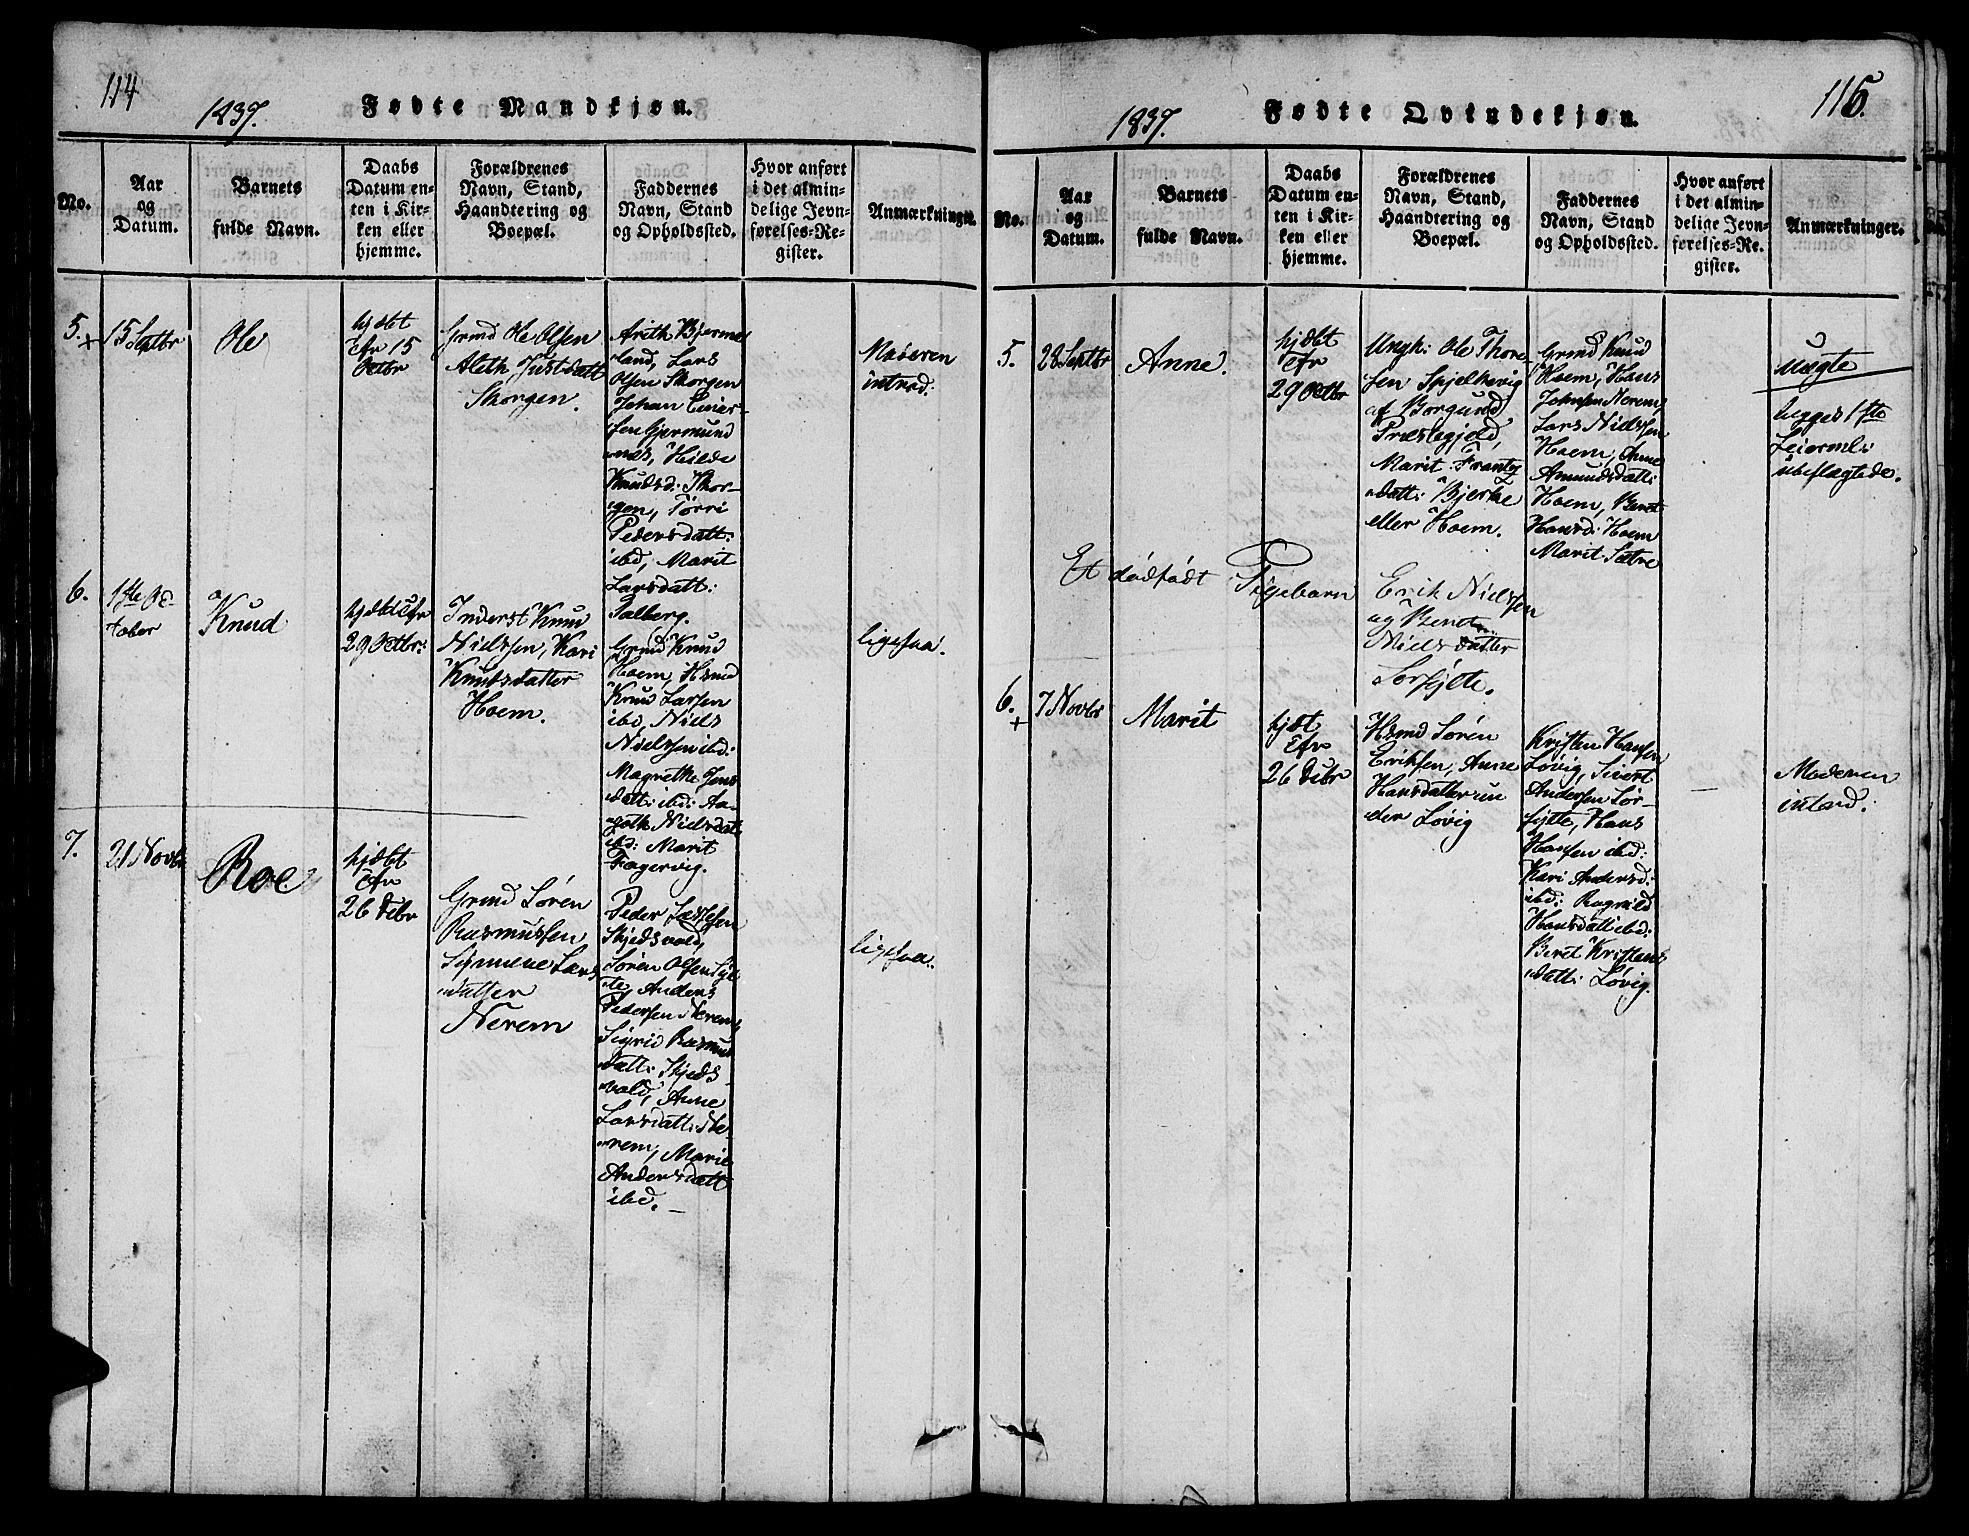 114
1837.
Fødte Mandkjøn.
No.
Aar
og
Datum.
Barnets
fulde Navn.
Daabs
Datum en-
ten i Kir-
ken eller
hjemme.
Forældrenes
Navn, Stand,
Haandtering og
Boepæl.
Faddernes
Navn, Stand
og Opholdssted.
Hvor anført
i det almin-
delige Jevn-
førelses-Re-
gister.
Anmærkninger.
5.
15 Septbr
Ole
hjdbt
Cfr 15
Octbr
Grmd Ole Olsen
Aleth Justdatt
Skorgen.
Areth Bjerme
land, Lars
Olsen Skorgen
Johan Einer-
sen Gjermund
nes, Hilde
Knudsd: Skor-
gen, Torri
Pedersdatt:
ibd, Marit
Larsdatt:
Dalberg.
Moderen
introd:
6.
1ste Oc-
tober
Knud
hjdbt Cfr
29 Octbr:
Inderst Knud
Nielssen, Kari
Knudsdatter
Hoem.
Grmd Knud
Hoem, Hsmd
Knud Larsen
ibd, Niels
Nielssen ibd:
Magrethe Jons
datt: ibd: Aa-
goth Nielsdatt
ibd: Marit
Fagervig.
ligesaa.
7.
21 Novbr
Roe
hjdbt
Cfr
26 Debr
Grmd Søren
Rasmussen
Lars
datter
Nerem
Peder
Skjedsvold,
Søren Olsen Syl
te, Anders
Pedersen Nerem,
Sigrid Rasmus
datt: Skjeds-
vold, Anne
Larsdatt: Ne-
rem, Marie
Andersdatt
ibd.
ligesaa.
115.
1837.
Fødte Qvindekjøn.
No.
Aar
og
Datum.
Barnets
fulde Navn.
Daabs
Datum en-
ten i Kir-
ken eller
hjemme.
Forældrenes
Navn, Stand,
Haandtering og
Boepæl.
Faddernes
Navn, Stand
og Opholdssted.
Hvor anført
i det almin-
delige Jevn-
førelses-Re-
gister.
Anmærkninger.
5.
28 Septbr
Anne.
hjdbt
Cfr
29 Octbr
Ungk: Ole Thore
sen Spjelkevig
af Borgund
Præstegjeld,
Marit Frants
datt: Bjerke
eller Hoem.
Grmd Knud
Hoem, Hans
Johnsen Nerem,
Lars Nielssen
Hoem, Anne
Amundsdatt:
Hoem, Beret
Hansd: Hoem
Marit Sætre
Uægte
begges 1ste
Leierml:
ubeslægtede.
Et dødfødt Pigebarn
Erik Nielssen
og Beret
Nielsdatter
Sorsylte.
6.
7 Novbr
Marit
hjdbt
Cfr
26 Debr
Hsmd Søren
Eriksen, Anne
Hansdatter un
der Løvig
Kristen Hansen
Løvig, Sivert
Andersen Sør-
sylte, Hans
Hansen ibd:
Kari Andersd:
ibd: Ragnild
Hansdatt ibd:
Beret Kristens
datt: Løvig.
Moderen
introd: